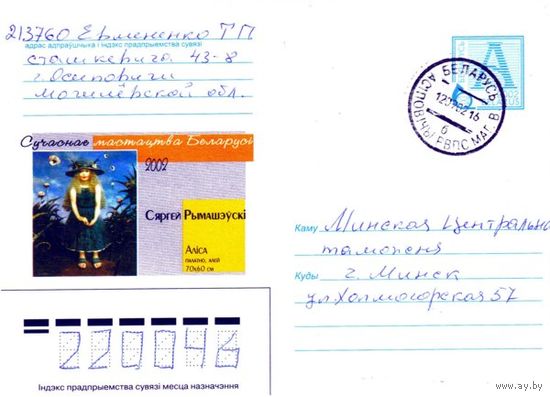 213760 Ермененко Т П
адрас адпраўшчыка і індэкс прадпрыемства сувязі
сташкевича 43-8
г. Осиповичи
могилёвской обл.
А
БЕЛАРУСЬ
АСІПОВІЧЫ РВПС МАГ. В.
б
Сучаснае мастацтва Беларусі
2002
Сяргей Рымашэўскі
Аліса
палатно, алей
70х60 см
Каму Минская Центральна
таможня
Куды г. Минск
ул Холмогорская 57
220046
Індэкс прадпрыемства сувязі месца назначэння
www.ay.by